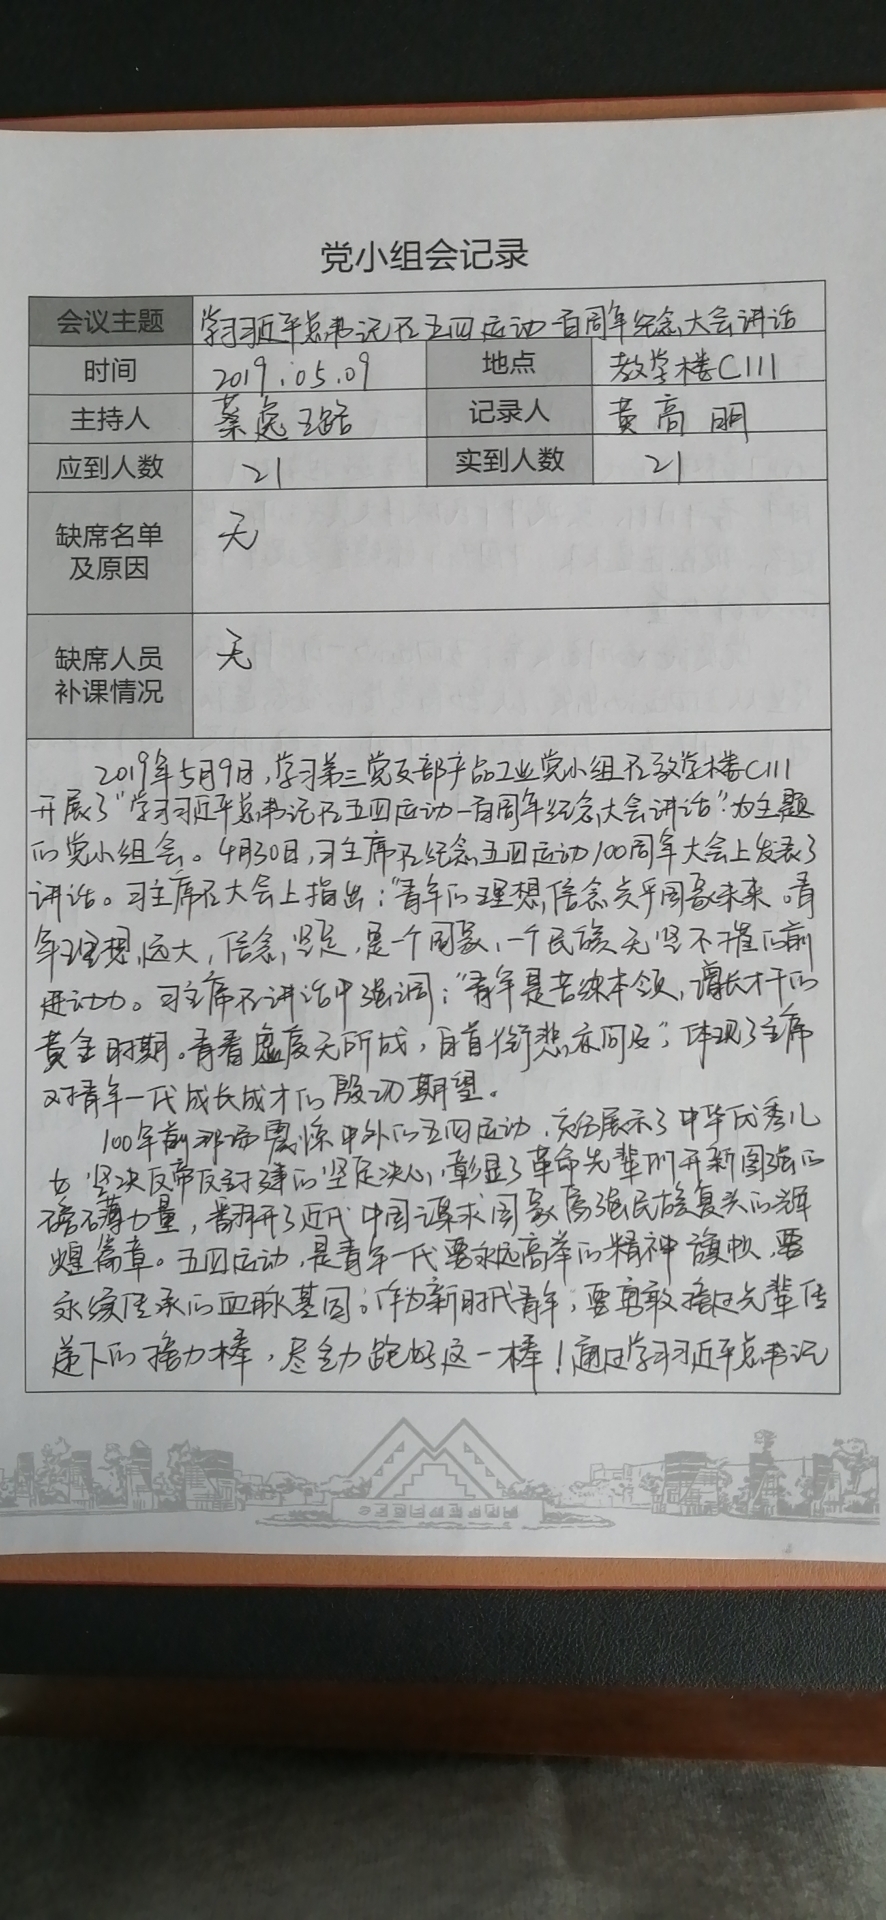 党小组会记录
会议主题 学习习近平总书记在五四运动一百周年纪念大会讲话
时间 2019.05.09 地点 教学楼C111
主持人 蔡逸璐 记录人 黄高明
应到人数 21 实到人数 21
缺席名单 无
及原因
缺席人员 无
补课情况
2019年5月9日,学习第三党支部产品工业党小组在教学楼C111
开展了“学习习近平总书记在五四运动一百周年纪念大会讲话”为主题
的党小组会。4月30日,习主席在纪念五四运动100周年大会上发表了
讲话。习主席在大会上指出:“青年的理想信念关乎国家未来。青
年理想远大,信念坚定,是一个国家,一个民族无坚不摧的前
进动力。习主席在讲话中强调:“青年是苦练本领,增长才干的
黄金时期。青春虚度无所成,白首衔悲亦何及”,体现了主席
对青年一代成长成才的殷切期望。
100年前那场震惊中外的五四运动,充分展示了中华优秀儿
女坚决反帝反封建的坚定决心,彰显了革命先辈们开新图强的
磅礴力量,翻开了近代中国谋求国家富强民族复兴的辉
煌篇章。五四运动,是青年一代要永远高举的精神旗帜,要
永续传承的血脉基因;作为新时代青年,要勇敢接过先辈传
递下的接力棒,尽全力跑好这一棒!通过学习习近平总书记